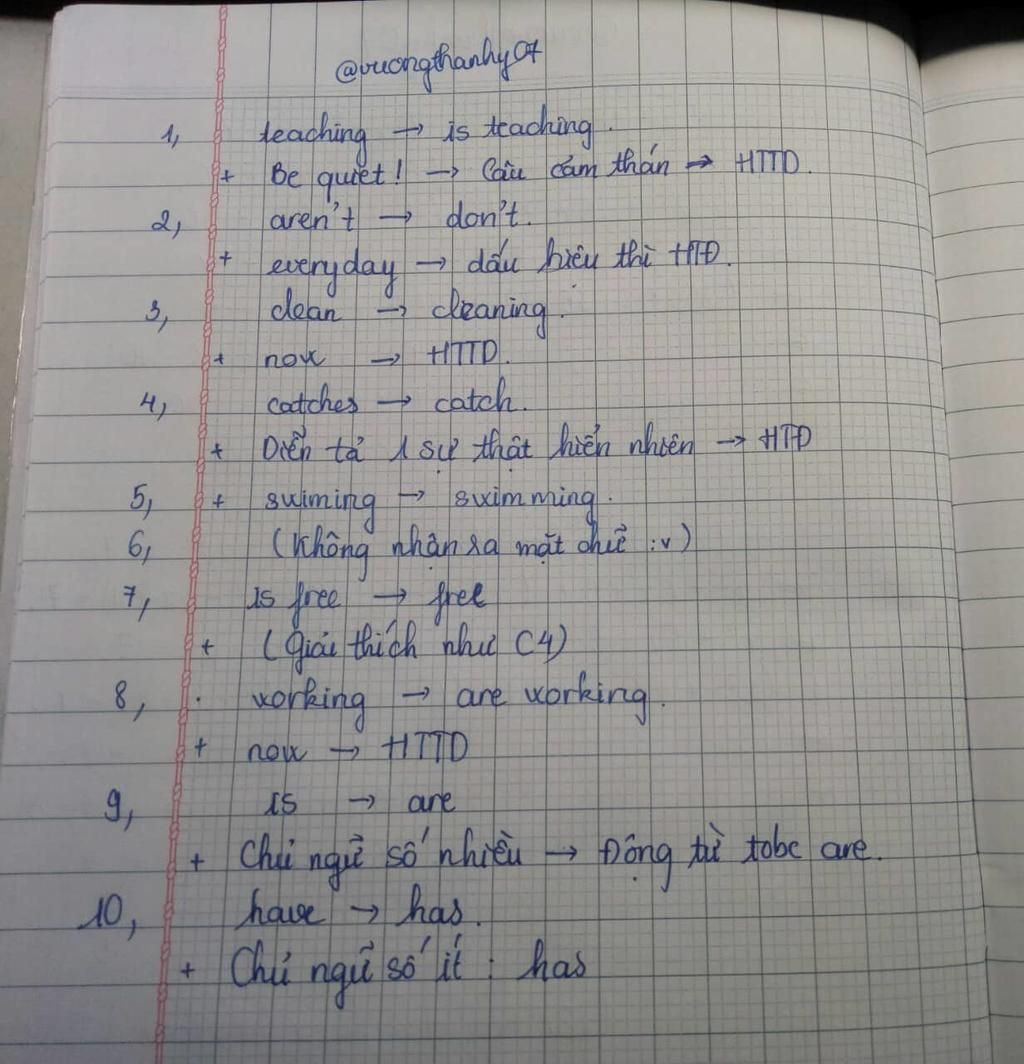 @vuongthanhy07
1, teaching → is teaching.
+ Be quiet! → Câu cảm thán → HTTD.
2, aren't → don't.
+ everyday → dấu hiệu thì HTĐ.
3, clean → cleaning.
+ now → HTTD.
4, catches → catch.
+ Diễn tả 1 sự thật hiển nhiên → HTĐ
5, + swiming → swimming.
6, (Không nhận ra mặt chữ :v)
7, is free → free
+ (Giải thích như C4)
8, . working → are working.
+ now → HTTD
9, is → are
+ Chủ ngữ số nhiều → Động từ tobe are.
10, have → has.
+ Chủ ngữ số ít : has